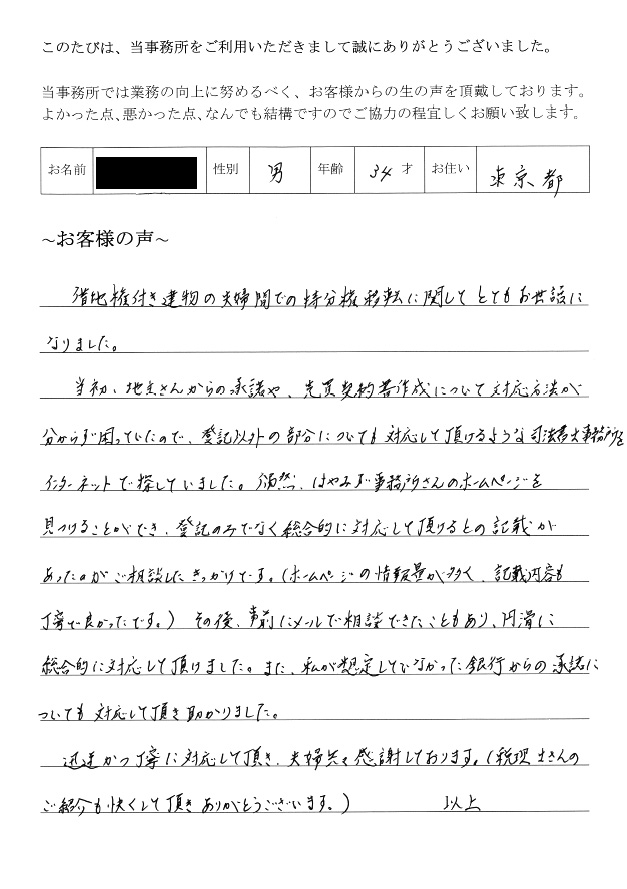 このたびは、当事務所をご利用いただきまして誠にありがとうございました。
当事務所では業務の向上に努めるべく、お客様からの生の声を頂戴しております。
よかった点、悪かった点、なんでも結構ですのでご協力の程宜しくお願い致します。
お名前 性別 男 年齢 34 才 お住い 東京都
~お客様の声~
借地権付き建物の夫婦間での持分権移転に関してとてもお世話に
なりました。
当初、地主さんからの承諾や、売買契約書作成について対応方法が
分からず困っていたので、登記以外の部分についても対応して頂けるような司法書士事務所を
インターネットで探していました。偶然、はやみず事務所さんのホームページを
見つけることができ、登記のみでなく総合的に対応して頂けるとの記載が
あったのがご相談したきっかけです。(ホームページの情報量が多く、記載内容も
丁寧で良かったです。) その後、事前にメールで相談できたこともあり、円滑に
総合的に対応して頂けました。また、私が想定していなかった銀行からの承諾に
ついても対応して頂き助かりました。
迅速かつ丁寧に対応して頂き、夫婦共々感謝しております。(税理士さんの
ご紹介も快くして頂きありがとうございます。) 以上